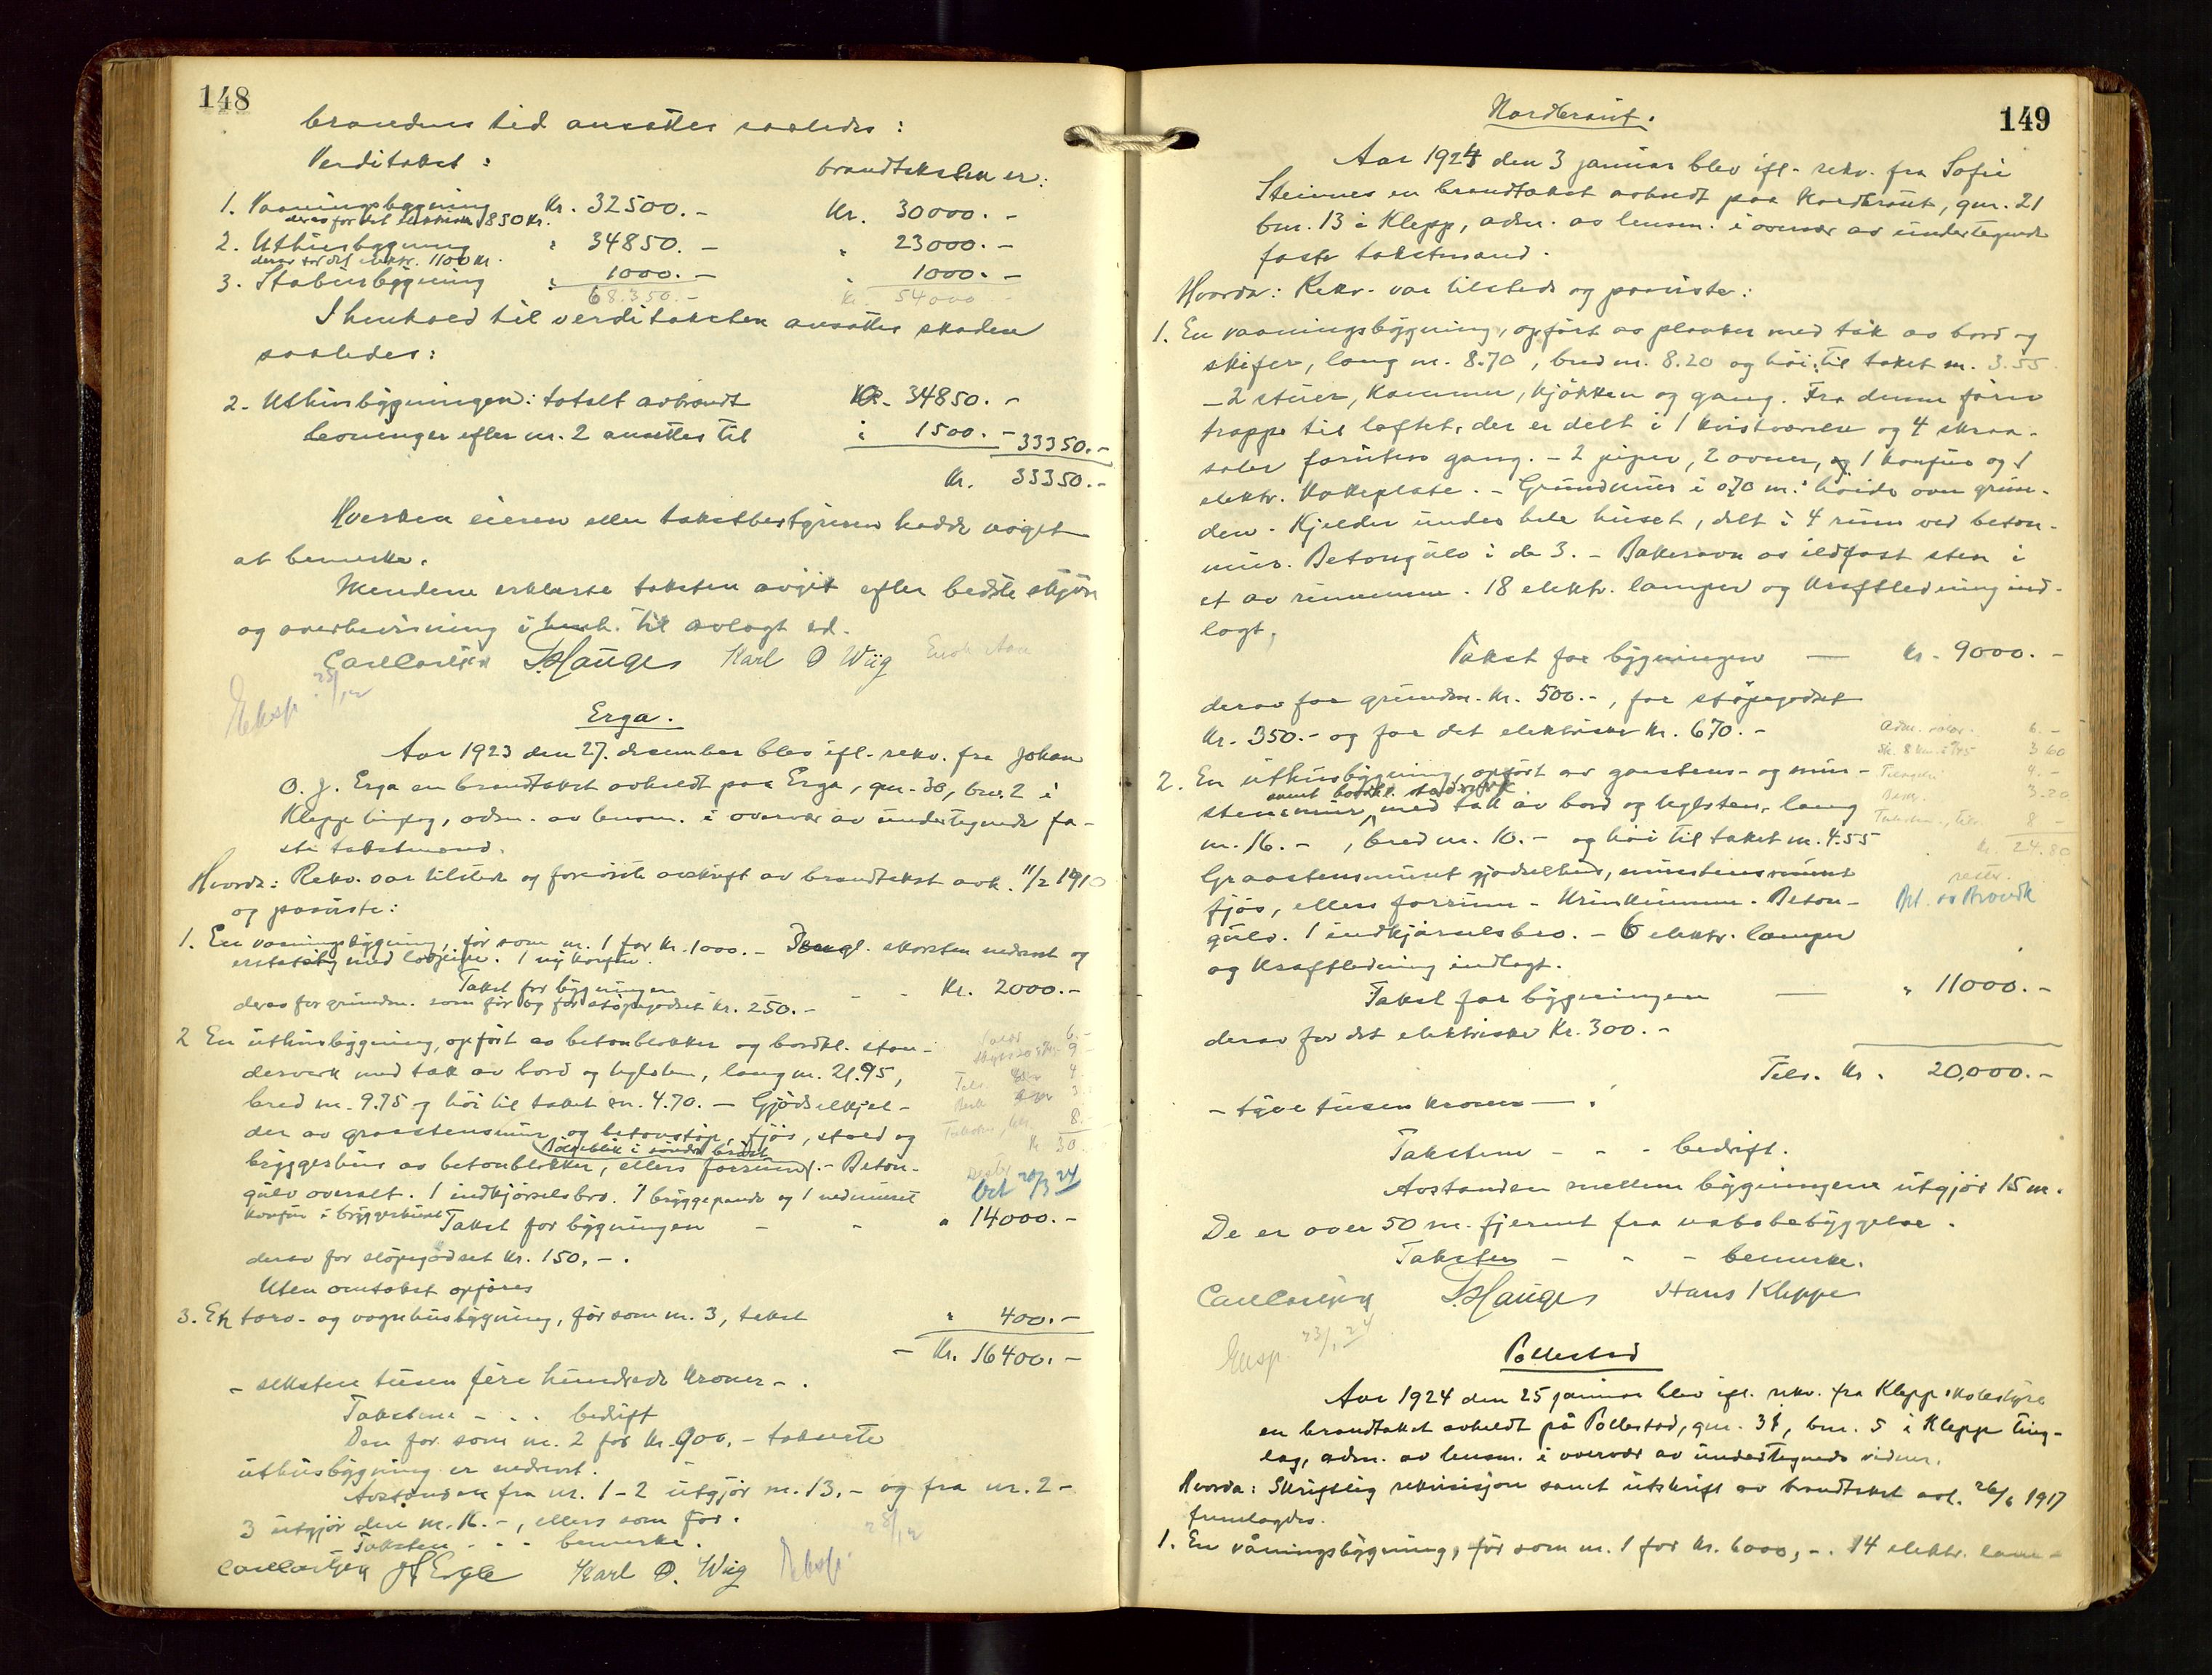 148
brandens tid ansættes saaledes :
Verditakst : brandtaksten er:
1. Vaaningsbygning Kr. 32500.- Kr. 30000.-
derav for det elektriske 1850 Kr.
2. Uthusbygning " 34850.- " 23000.-
derav for det elektr. 1100 Kr.
3. Stabursbygning " 1000.- " 1000.-
68.350.- Kr. 54000
I henhold til verditaksten ansættes skaden
saaledes:
2. Uthusbygningen: totalt avbrændt Kr. 34850.-
levninger efter nr. 2 ansættes til " 1500.- 33350.-
Kr. 33350.-
Hverken eieren eller takstbestyreren hadde noget
at bemerke.
Mendene erklærte taksten avgit efter bedste skjøn
og overbevisning i henh. til avlagt ed.
Carl Carlsen S. Hauge Karl O Wiig
Eksp. 28/12
Erga.
Aar 1923 den 27. december blev ifl. rekv. fra Johan
O. J. Erga en brandtakst avholdt paa Erga, gnr. 30, bnr. 2 i
Klepp tinglag, adm. av lensm. i overvær av undertegnede fa-
ste takstmænd.
Hvorda: Rekv. var tilstede og foreviste avskrift av brandtakst avh. 11/2 1910
og paaviste:
1. En vaaningsbygning, før som nr. 1 for Kr. 1000.- skorsten nedrevet og
erstattet med løepipe. 1 ny komfur.
Takst for bygningen - - Kr. 2000.-
derav for grundm. som før og for støpegodset Kr. 250.-
2 En uthusbygning, opført av betonblokker og bordkl. stan-
derverk med tak av bord og teglsten, lang m. 21.95,
bred m. 9.75 og høi til taket m. 4.70. - Gjødselkjel-
der av graastensmur og betonstøp, fjøs, stald og
Bølgeblik i søndre bredst
bryggerhus av betonblokker, ellers forrum. - Beton-
gulv overalt. 1 indkjørselsbro. 1 bryggepande og 1 nedmuret
komfur i bryggerhuset Takst for bygningen - - " 14000.-
derav for støpegodset Kr. 150,-.
Uten omtakst opføres
3. En torv- og vognhusbygning, før som nr. 3, takst " 400.-
- Kr. 16400.-
- seksten tusen fire hundrede kroner - .
Takstene - . . bedrift
Den før som nr. 2 for Kr. 900.- takserte
uthusbygning er nedrevet.
Avstanden fra nr. 1-2 utgjør m. 13.- og fra nr. 2-
3 utgjør den m. 16.-, ellers som før.
- Taksten - . - bemerke.
Carl Carlsen Erga Karl O. Wiig Eksp. 28/12
149
Nordbraut.
Aar 1924 den 3 januar blev ifl. rekv. fra Sofie
Steinnes en brandtakst avholdt paa Nordbraut, gnr. 21
bnr. 13 i Klepp, adm. av lensm. i overvær av undertegnede
faste takstmænd.
Hvorda: Rekv. var tilstede og paaviste:
1. En vaaningsbygning, opført av planker med tak av bord og
skifer, lang m. 8.70, bred m. 8.20 og høi til taket m. 3.55.
- 2 stuer, kammer, kjøkken og gang. Fra denne fører
trappe til loftet, der er delt i 1 kvistværelse og 4 skraa-
saler foruten gang. - 2 piper, 2 ovner, og 1 komfur og 1
elektr. kokeplate. - Grundmur i 0,70 m.s høide over grun-
den. Kjelder under hele huset, delt i 4 rum ved beton-
mur. Betongulv i de 3. - Bakerovn av ildfast sten i
et av rummene. 18 elektr. lamper og kraftledning ind-
lagt.
Takst for bygningen — Kr. 9000.-
derav for grundm. Kr. 500.-, for støpegodset
Kr. 350.- og for det elektriske Kr. 670.-
2. En uthusbygning, opført av graastens- og mur-
samt bordkl. standerverk
stensmur, med tak av bord og teglsten, lang
m. 16.-, bred m. 10.- og høi til taket m. 4.55
Graastensmuret gjødselhus, murstensmuret
fjøs, ellers forrum. - Urinkummen. Beton-
gulv. 1 indkjørselsbro. - 6 elektr. lamper
og kraftledning indlagt.
Kr. 24.80
Takst for bygningen — " 11000.-
derav for det elektriske Kr. 300.-
Tils. Kr. 20,000.-
- tyve tusen kroner - .
Takstene - - - bedrift.
Avstanden mellem bygningene utgjør 15 m.
De er over 50 m. fjernet fra nabobebyggelse.
Taksten - - - bemerke.
Carl Carlsen S. Hauge Hans Kleppe
Eksp. 23/1 24
Pollestad
Aar 1924 den 25 januar blev ifl. rekv. fra Klepp skolestyre
en brandtakst avholdt på Pollestad, gnr. 31, bnr. 5 i Klepp ting-
lag, adm. av lensm. i overvær av undertegnede vidner.
Hvorda: Skriftlig rekvisisjon samt utskrift av brandtakst avh. 26/6 1917
fremlagdes.
1. En våningsbygning, før som nr. 1 for Kr. 6000,-. 14 elektr. lam-